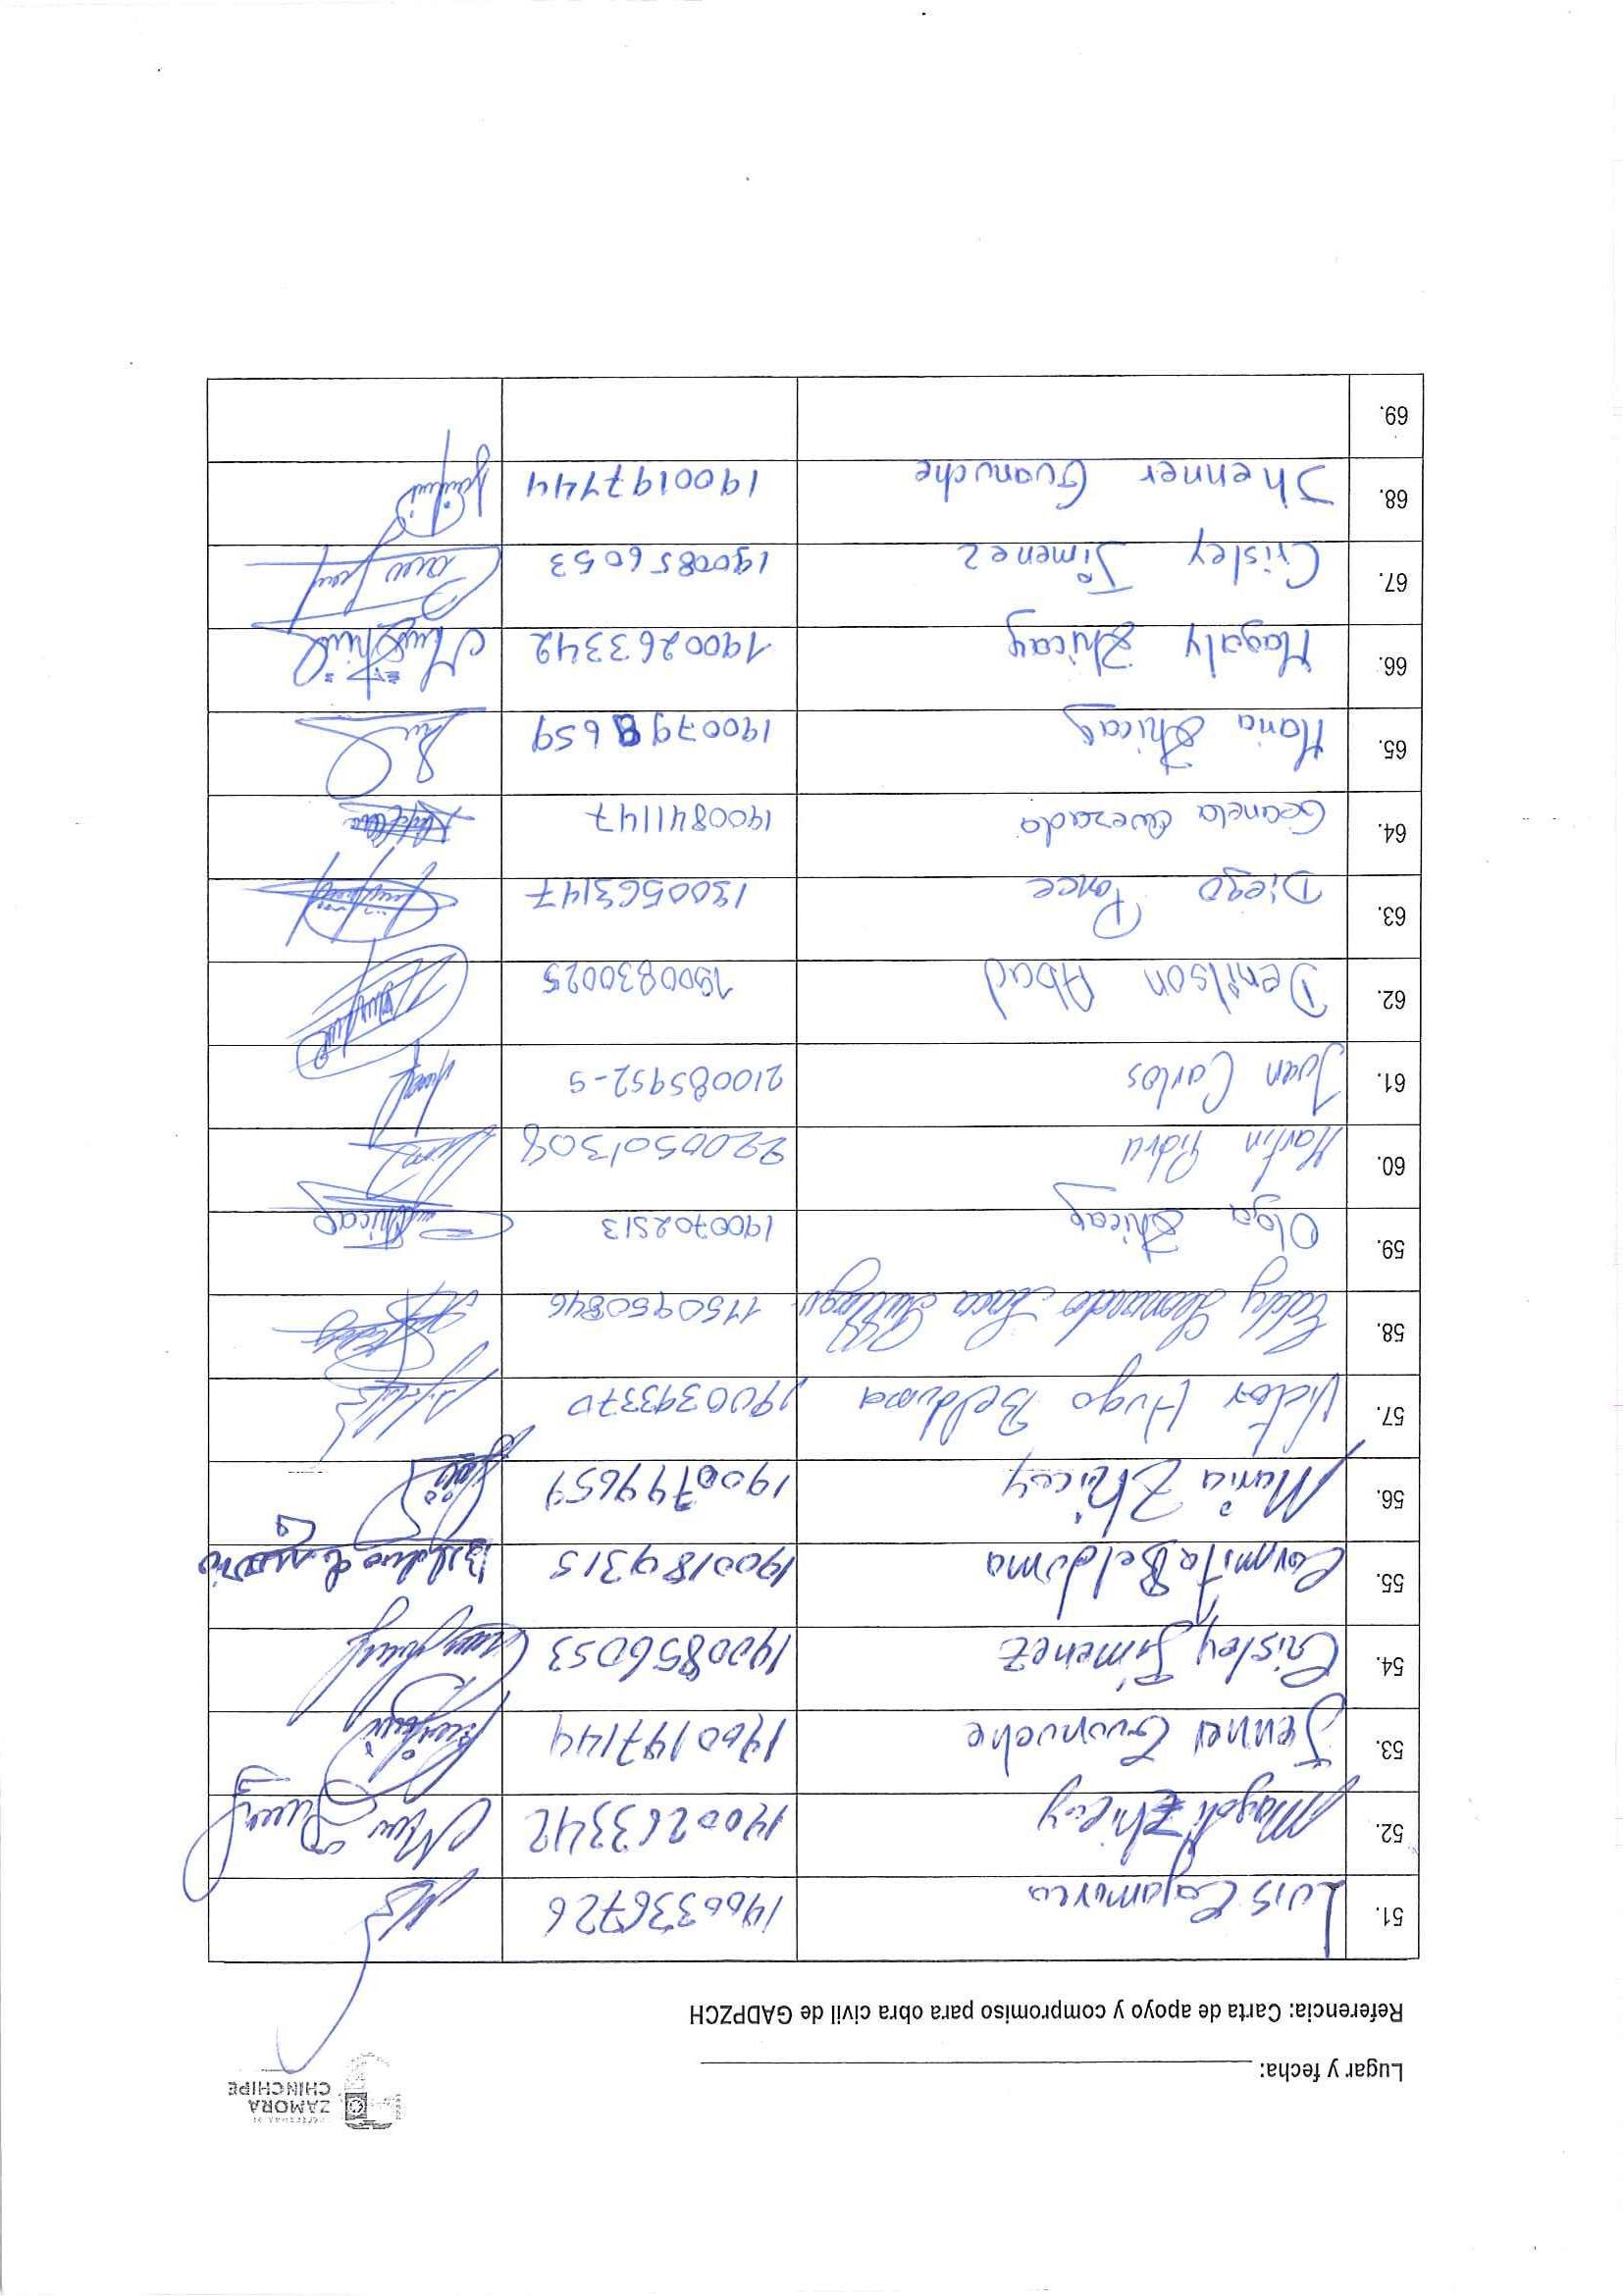 ZAMORA
CHINCHIPE
Lugar y fecha:
Referencia: Carta de apoyo y compromiso para obra civil de GADPZCH
51. Luis Cajamarca 1900336726
52. Magali Zhicay 1900263342
53. Jenner Guanuche 1900197144
54. Crisley Jimenez 1900856053
55. Carmita Belduma 1900189315
56. Maria Zhicay 1900799659
57. Victor Hugo Belduma 1900393370
58. Eddy Leonardo 1150950846
59. Olga Zhicay 1900702513
60. Martin 2200501308
61. Juan Carlos 210085952-5
62. Denilson Abad 1900830025
63. Diego Ponce 1900563147
64. Geanela Quezada 1900841147
65. Maria Zhicay 190079 659
66. Magaly Zhicay 1900263342
67. Crisley Jimenez 1900856053
68. Jhenner Guanuche 1900197144
69.